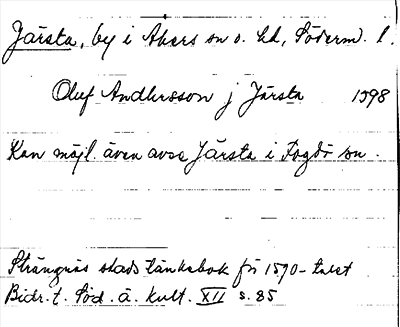 Järsta, by i Åkers sn o. hd, Söderm. l.
Oluf Andhersson j Järsta 1598
Kan möjl. även avse Järsta i Fogdö sn.
Strängnäs stads tänkebok för 1590-talet
Bidr. t. Söd. ä. kult. XII s. 85